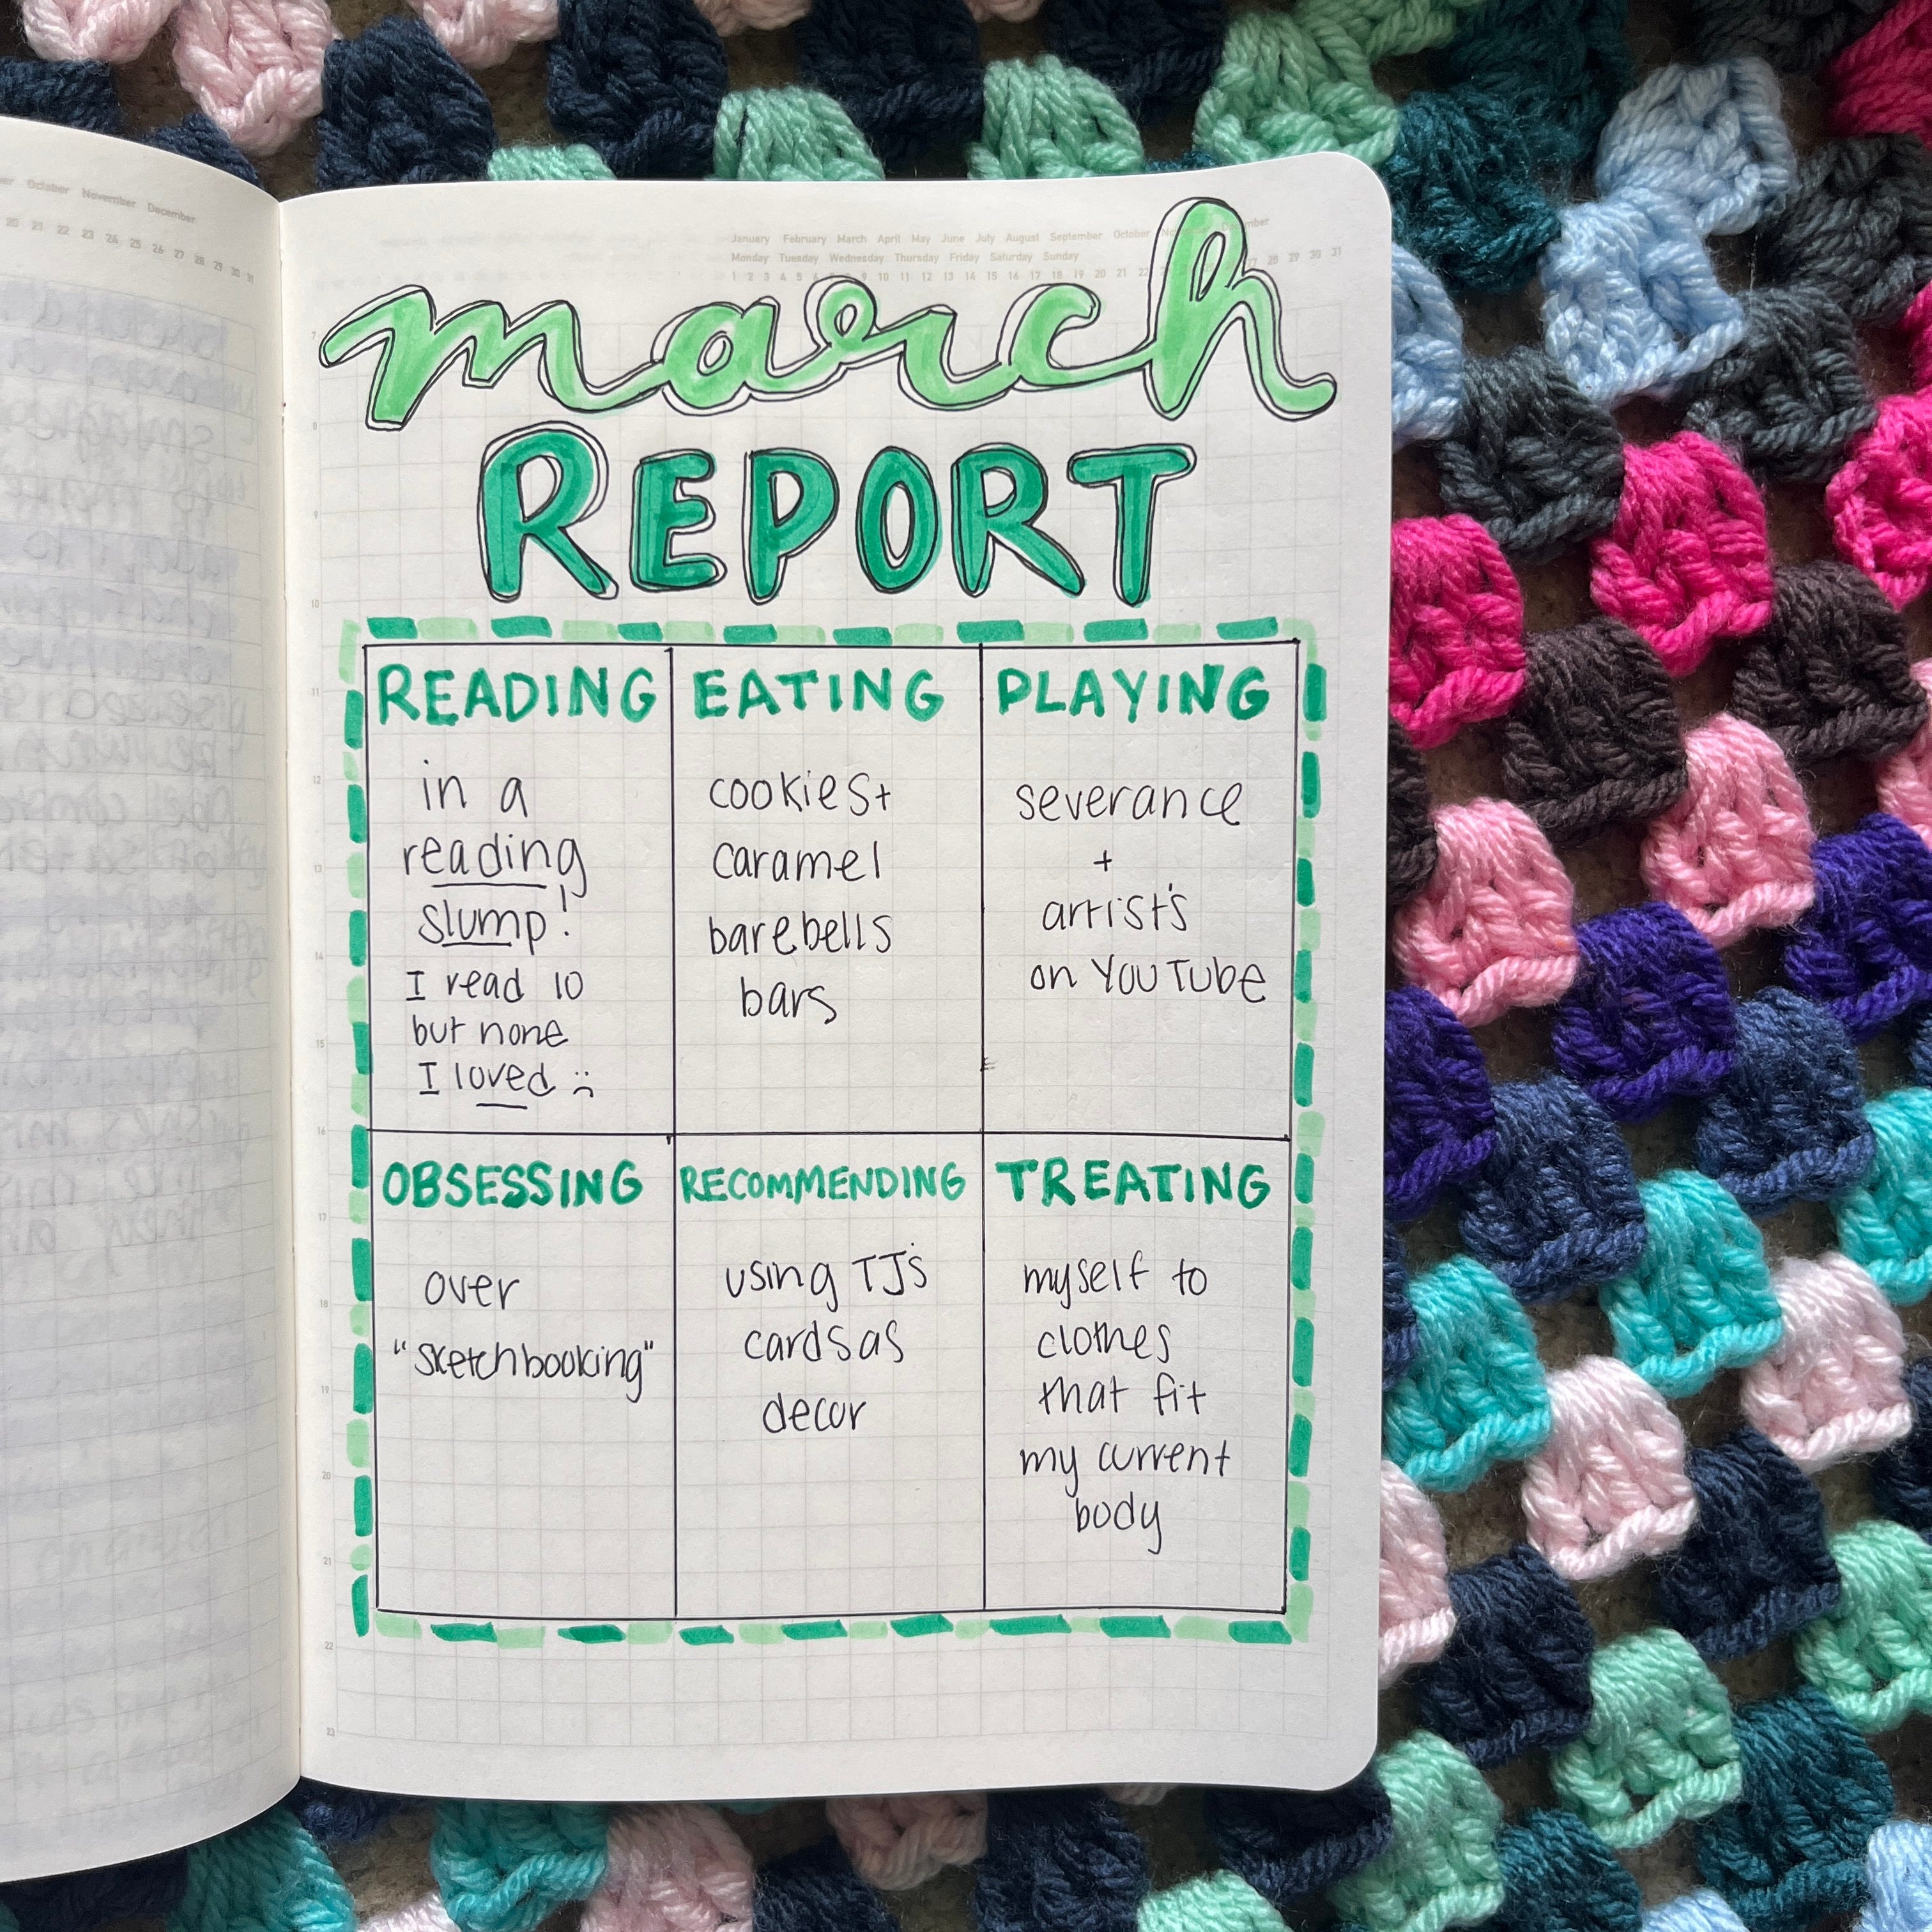 October November December
20 21 22 23 24 25 26 27 28 29 30 31
January February March April May June July August September October
Monday Tuesday Wednesday Thursday Friday Saturday Sunday
1 2 3 4 5 9 10 11 12 13 14 15 16 17 18 19 20 21 22 27 28 29 30 31
march
REPORT
READING
in a
reading
slump!
I read 10
but none
I loved :(
EATING
cookies+
caramel
barebells
bars
PLAYING
severance
+
artist's
on YouTube
OBSESSING
over
"sketchbooking"
RECOMMENDING
using TJ's
cards as
decor
TREATING
myself to
clothes
that fit
my current
body
7
8
9
10
11
12
13
14
15
16
17
18
19
20
21
22
23